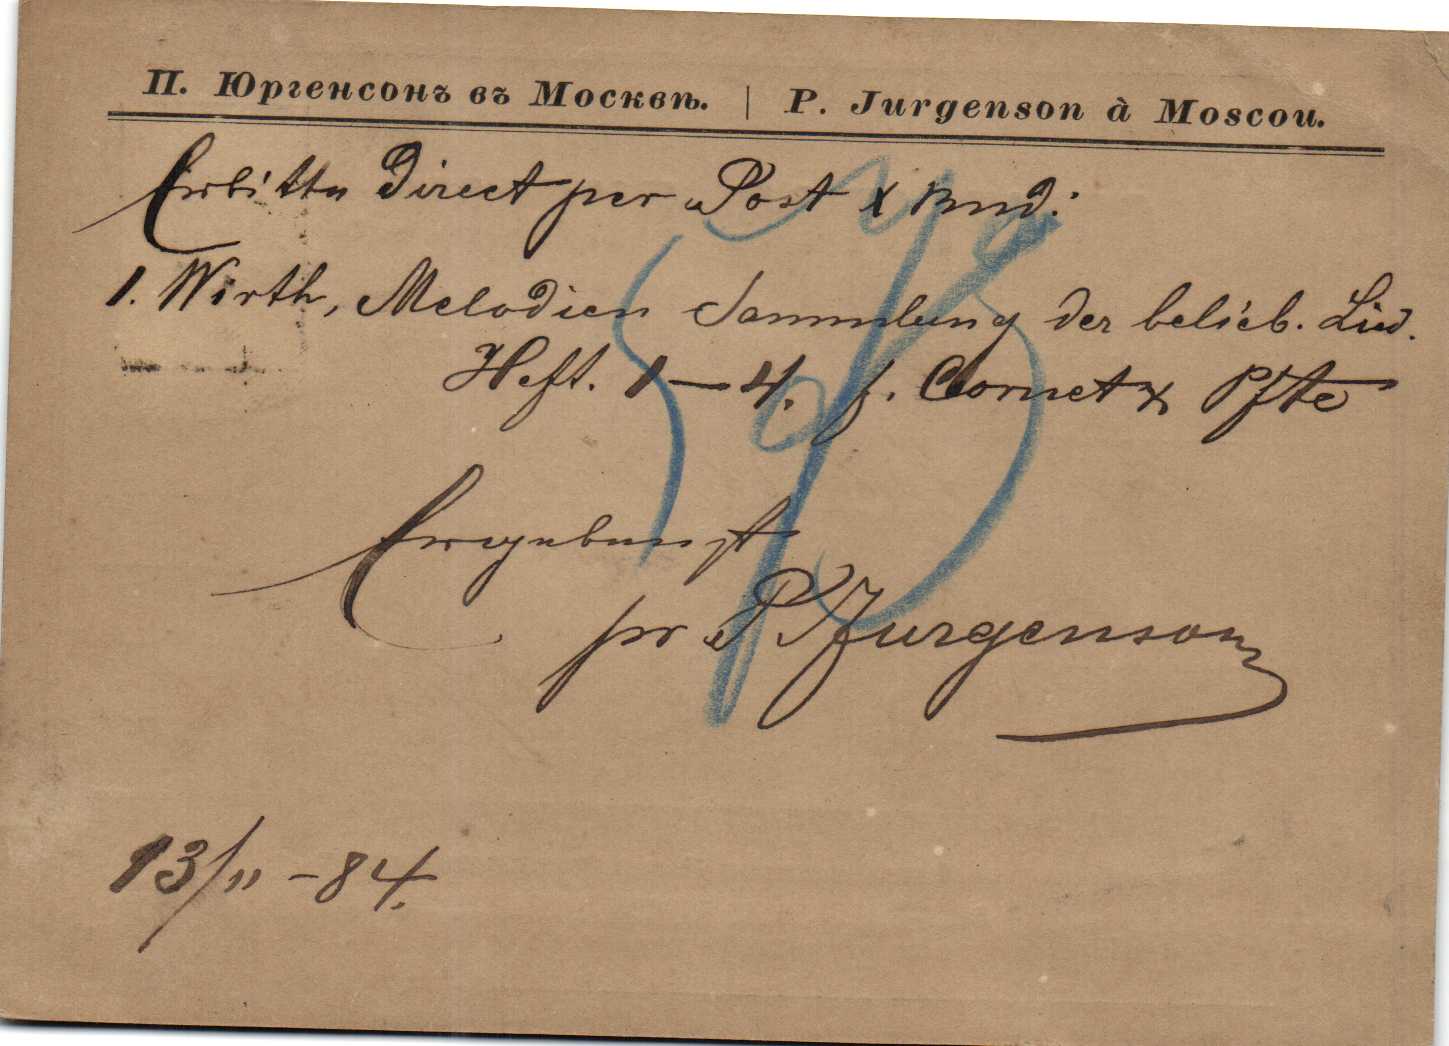 П. Юргенсонъ въ Москвѣ. | P. Jurgenson à Moscou.
Erbitte Direct per Post X Bnd:
1. Wirth, Melodien Sammlung der belieb. Lied.
Heft. 1–4. f. Cornet & Pfte
Ergebenst
pr P Jurgenson
13/11 – 84.